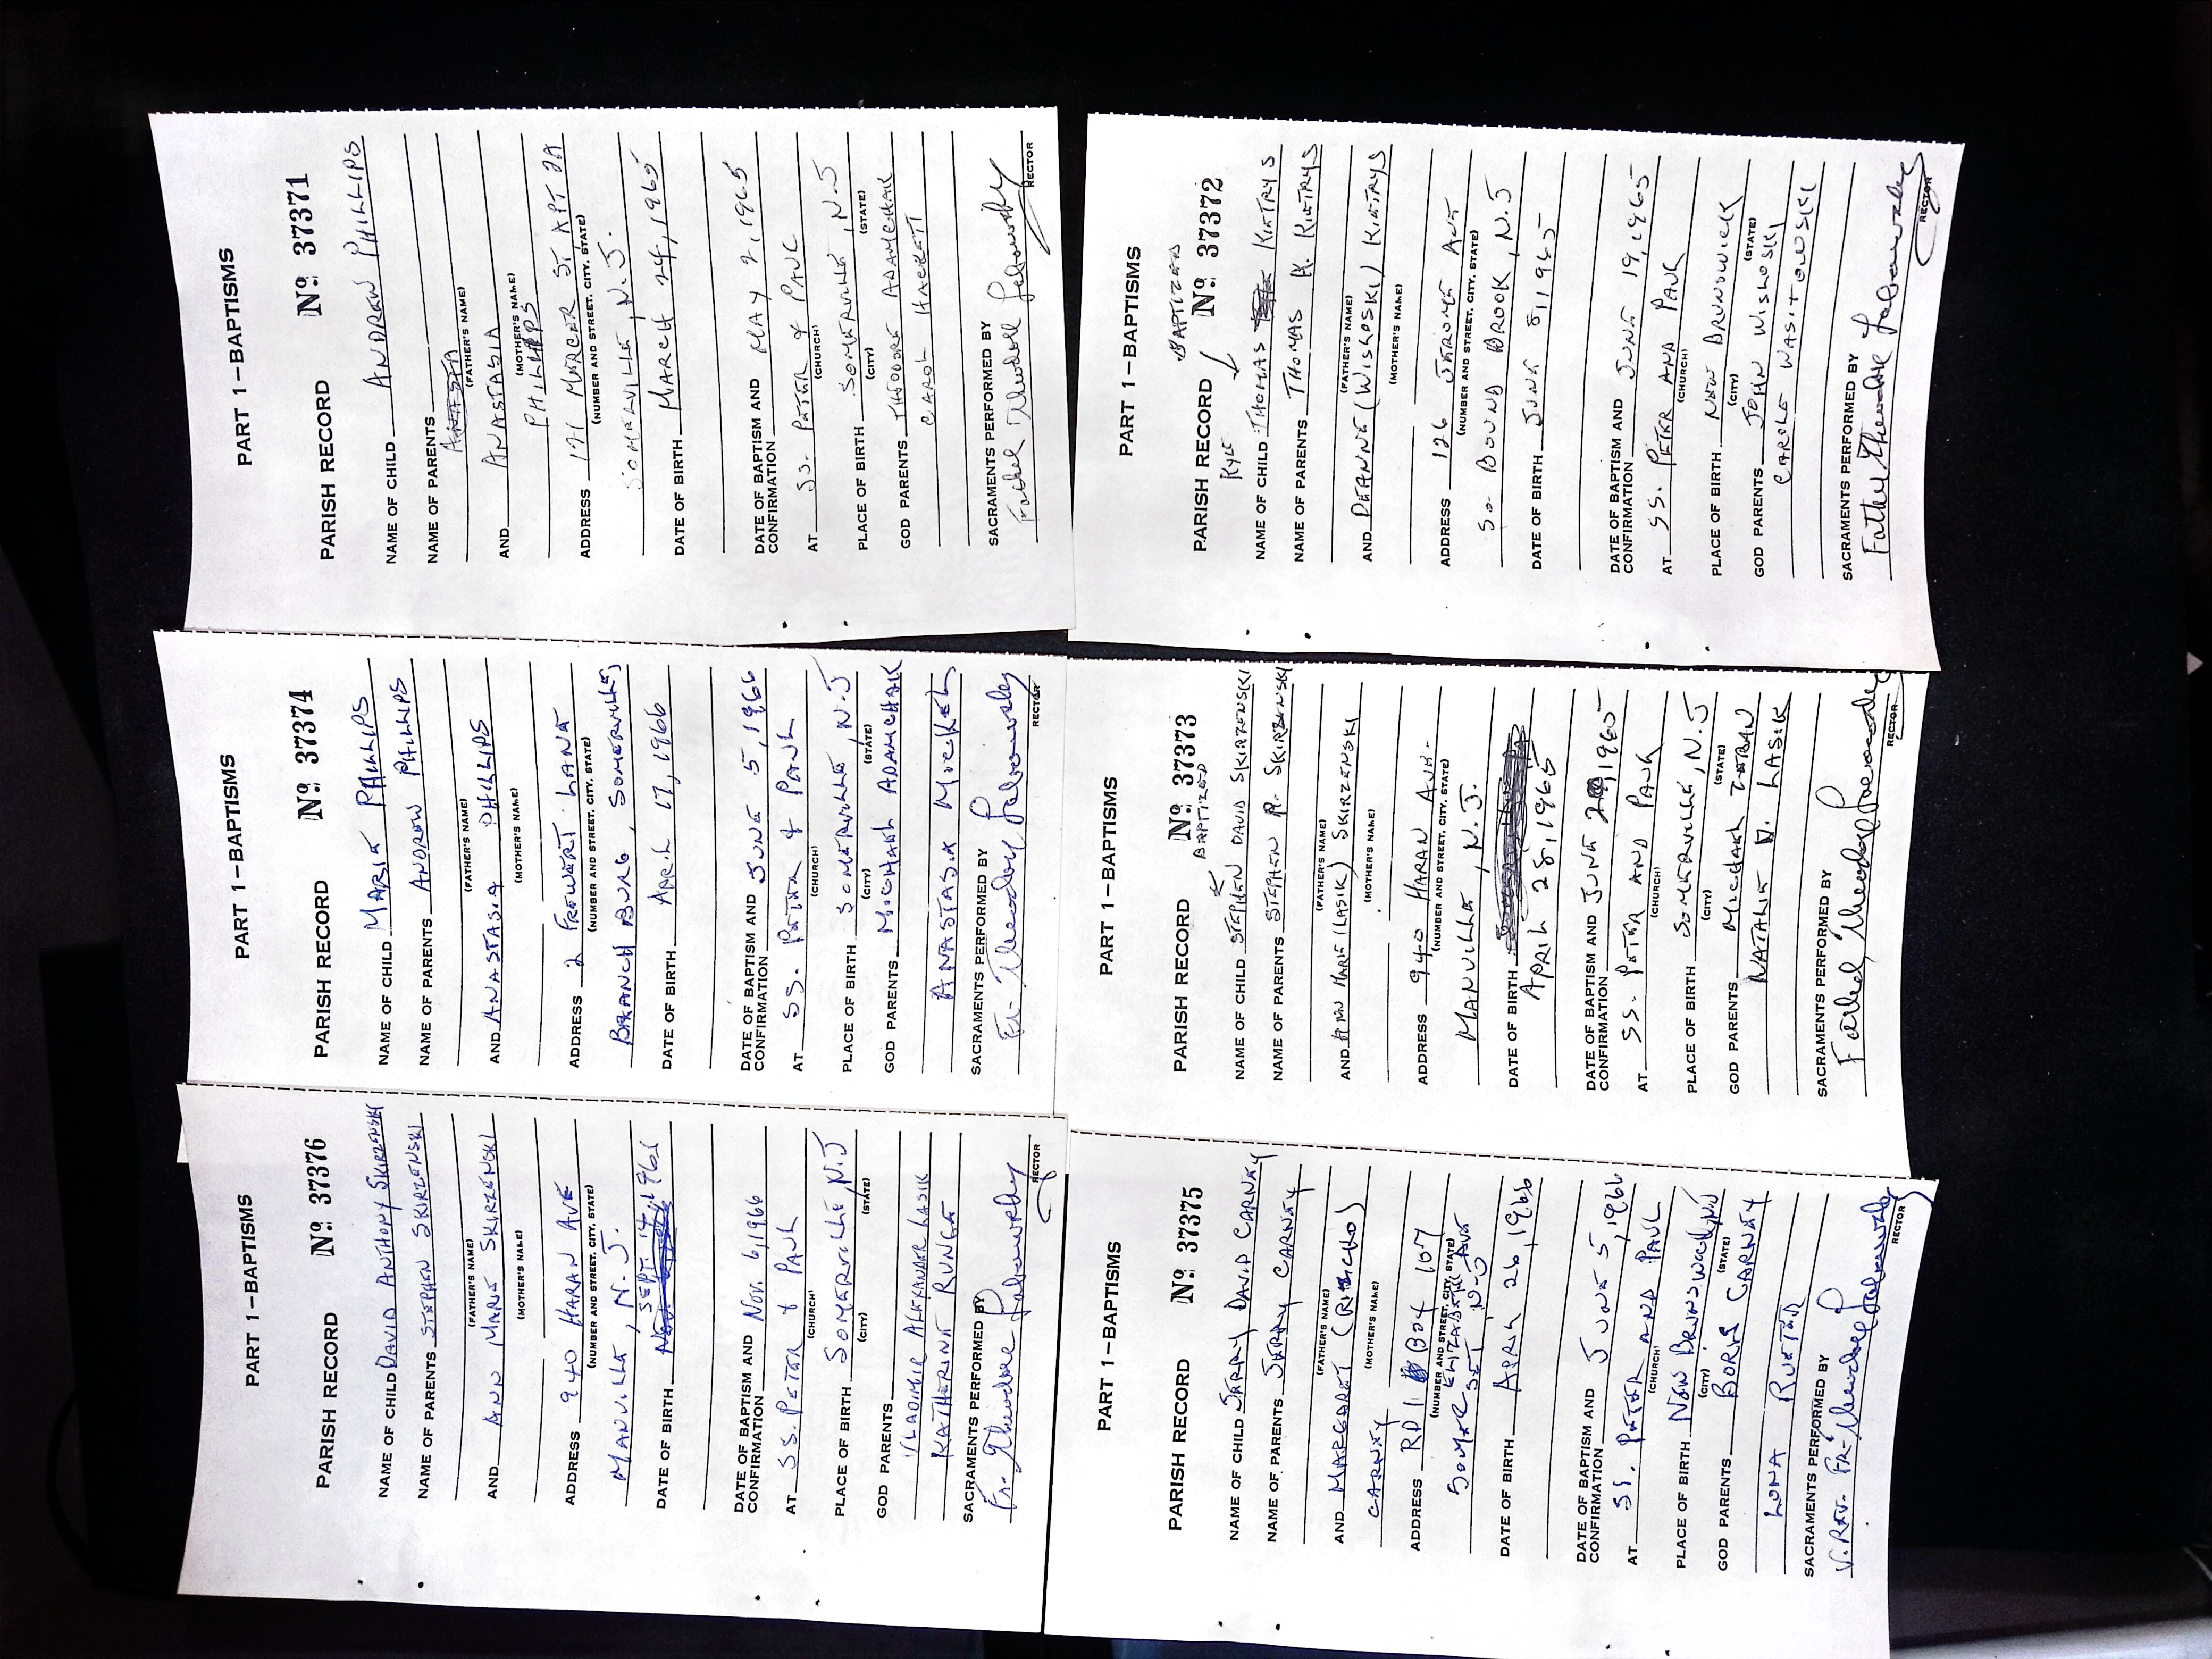 PART 1—BAPTISMS
PARISH RECORD Nº 37376
NAME OF CHILD DAVID ANTHONY SKIRZENSKI
NAME OF PARENTS STEPHEN SKIRZENSKI
(FATHER'S NAME)
AND ANN MARIE SKIRZENSKI
(MOTHER'S NAME)
ADDRESS 940 HARAN AVE
(NUMBER AND STREET, CITY, STATE)
MANVILLE, N.J.
SEPT. 14, 1966
DATE OF BIRTH
DATE OF BAPTISM AND
CONFIRMATION NOV. 6, 1966
AT SS. PETER & PAUL
(CHURCH)
PLACE OF BIRTH SOMERVILLE, N.J
(CITY) (STATE)
GOD PARENTS
VLADIMIR ALEXANDER LASIK
KATHERINE RUNGE
SACRAMENTS PERFORMED BY
Fr. Theodore Labowsky
RECTOR
PART 1—BAPTISMS
PARISH RECORD Nº 37374
NAME OF CHILD MARIE PHILLIPS
NAME OF PARENTS ANDREW PHILLIPS
(FATHER'S NAME)
AND ANASTASIA PHILLIPS
(MOTHER'S NAME)
ADDRESS 2 FREWERT LANE
(NUMBER AND STREET, CITY, STATE)
BRANCH BURG, SOMERVILLE,
DATE OF BIRTH APRIL 17, 1966
DATE OF BAPTISM AND
CONFIRMATION JUNE 5, 1966
AT SS. PETER & PAUL
(CHURCH)
PLACE OF BIRTH SOMERVILLE, N.J
(CITY) (STATE)
GOD PARENTS MICHAEL ADAMCHAK
ANASTASIA MICKEL
SACRAMENTS PERFORMED BY
Fr. Theodore Labowsky
RECTOR
PART 1—BAPTISMS
PARISH RECORD Nº 37371
NAME OF CHILD ANDREW PHILLIPS
NAME OF PARENTS
ANASTA
(FATHER'S NAME)
AND ANASTASIA
(MOTHER'S NAME)
PHILLIPS
ADDRESS 121 MERCER ST, APT 2A
(NUMBER AND STREET, CITY, STATE)
SOMERVILLE, N.J.
DATE OF BIRTH MARCH 24, 1965
DATE OF BAPTISM AND
CONFIRMATION MAY 2, 1965
AT SS. PETER & PAUL
(CHURCH)
PLACE OF BIRTH SOMERVILLE, N.J
(CITY) (STATE)
GOD PARENTS THEODORE ADAMCHAK
CAROL HACKETT
SACRAMENTS PERFORMED BY
Father Theodore Labowsky
RECTOR
PART 1—BAPTISMS
PARISH RECORD Nº 37375
NAME OF CHILD JERRY DAVID CARNEY
NAME OF PARENTS JERRY CARNEY
(FATHER'S NAME)
AND MARGARET
CARNEY (MOTHER'S NAME)
ADDRESS RD 1 BOX 107
(NUMBER AND STREET, CITY, STATE)
ELIZABETH AVE
SOMERSET, N.J
DATE OF BIRTH APRIL 26, 1966
DATE OF BAPTISM AND
CONFIRMATION JUNE 5, 1966
AT SS. PETER AND PAUL
(CHURCH)
PLACE OF BIRTH NEW BRUNSWICK, NJ
(CITY) (STATE)
GOD PARENTS BORIS CARNEY
LONA RUETER
SACRAMENTS PERFORMED BY
V. REV. FR. Theodore Labowsky
RECTOR
PART 1—BAPTISMS
PARISH RECORD Nº 37373
BAPTIZED
NAME OF CHILD STEPHEN DAVID SKIRZENSKI
NAME OF PARENTS STEPHEN A. SKIRZENSKI
(FATHER'S NAME)
AND ANN MARIE (LASIK) SKIRZENSKI
(MOTHER'S NAME)
ADDRESS 940 HARAN AVE.
(NUMBER AND STREET, CITY, STATE)
MANVILLE, N.J.
DATE OF BIRTH
APRIL 28, 1965
DATE OF BAPTISM AND
CONFIRMATION JUNE 1965
AT SS. PETER AND PAUL
(CHURCH)
PLACE OF BIRTH SOMERVILLE, N.J
(CITY) (STATE)
GOD PARENTS MICHAEL
NATALIE D. LASIK
SACRAMENTS PERFORMED BY
Father Theodore Labowsky
RECTOR
PART 1—BAPTISMS
BAPTIZED
PARISH RECORD Nº 37372
KYLE
NAME OF CHILD THOMAS KIETRYS
NAME OF PARENTS THOMAS A. KIETRYS
(FATHER'S NAME)
AND DEANNE (WISLOSKI) KIETRYS
(MOTHER'S NAME)
ADDRESS 126 JEROME AVE
(NUMBER AND STREET, CITY, STATE)
SO. BOUND BROOK, N.J
DATE OF BIRTH JUNE 8, 1965
DATE OF BAPTISM AND
CONFIRMATION JUNE 19, 1965
AT SS. PETER AND PAUL
(CHURCH)
PLACE OF BIRTH NEW BRUNSWICK
(CITY) (STATE)
GOD PARENTS JOHN WISLOSKI
CAROLE WASITOWSKI
SACRAMENTS PERFORMED BY
Father Theodore Labowsky
RECTOR